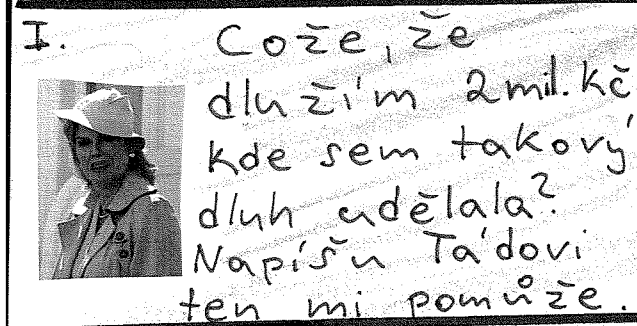 I.
Cože, že
dlužím 2mil.kč
kde sem takový
dluh udělala?
Napíšu Táďovi
ten mi pomůže.